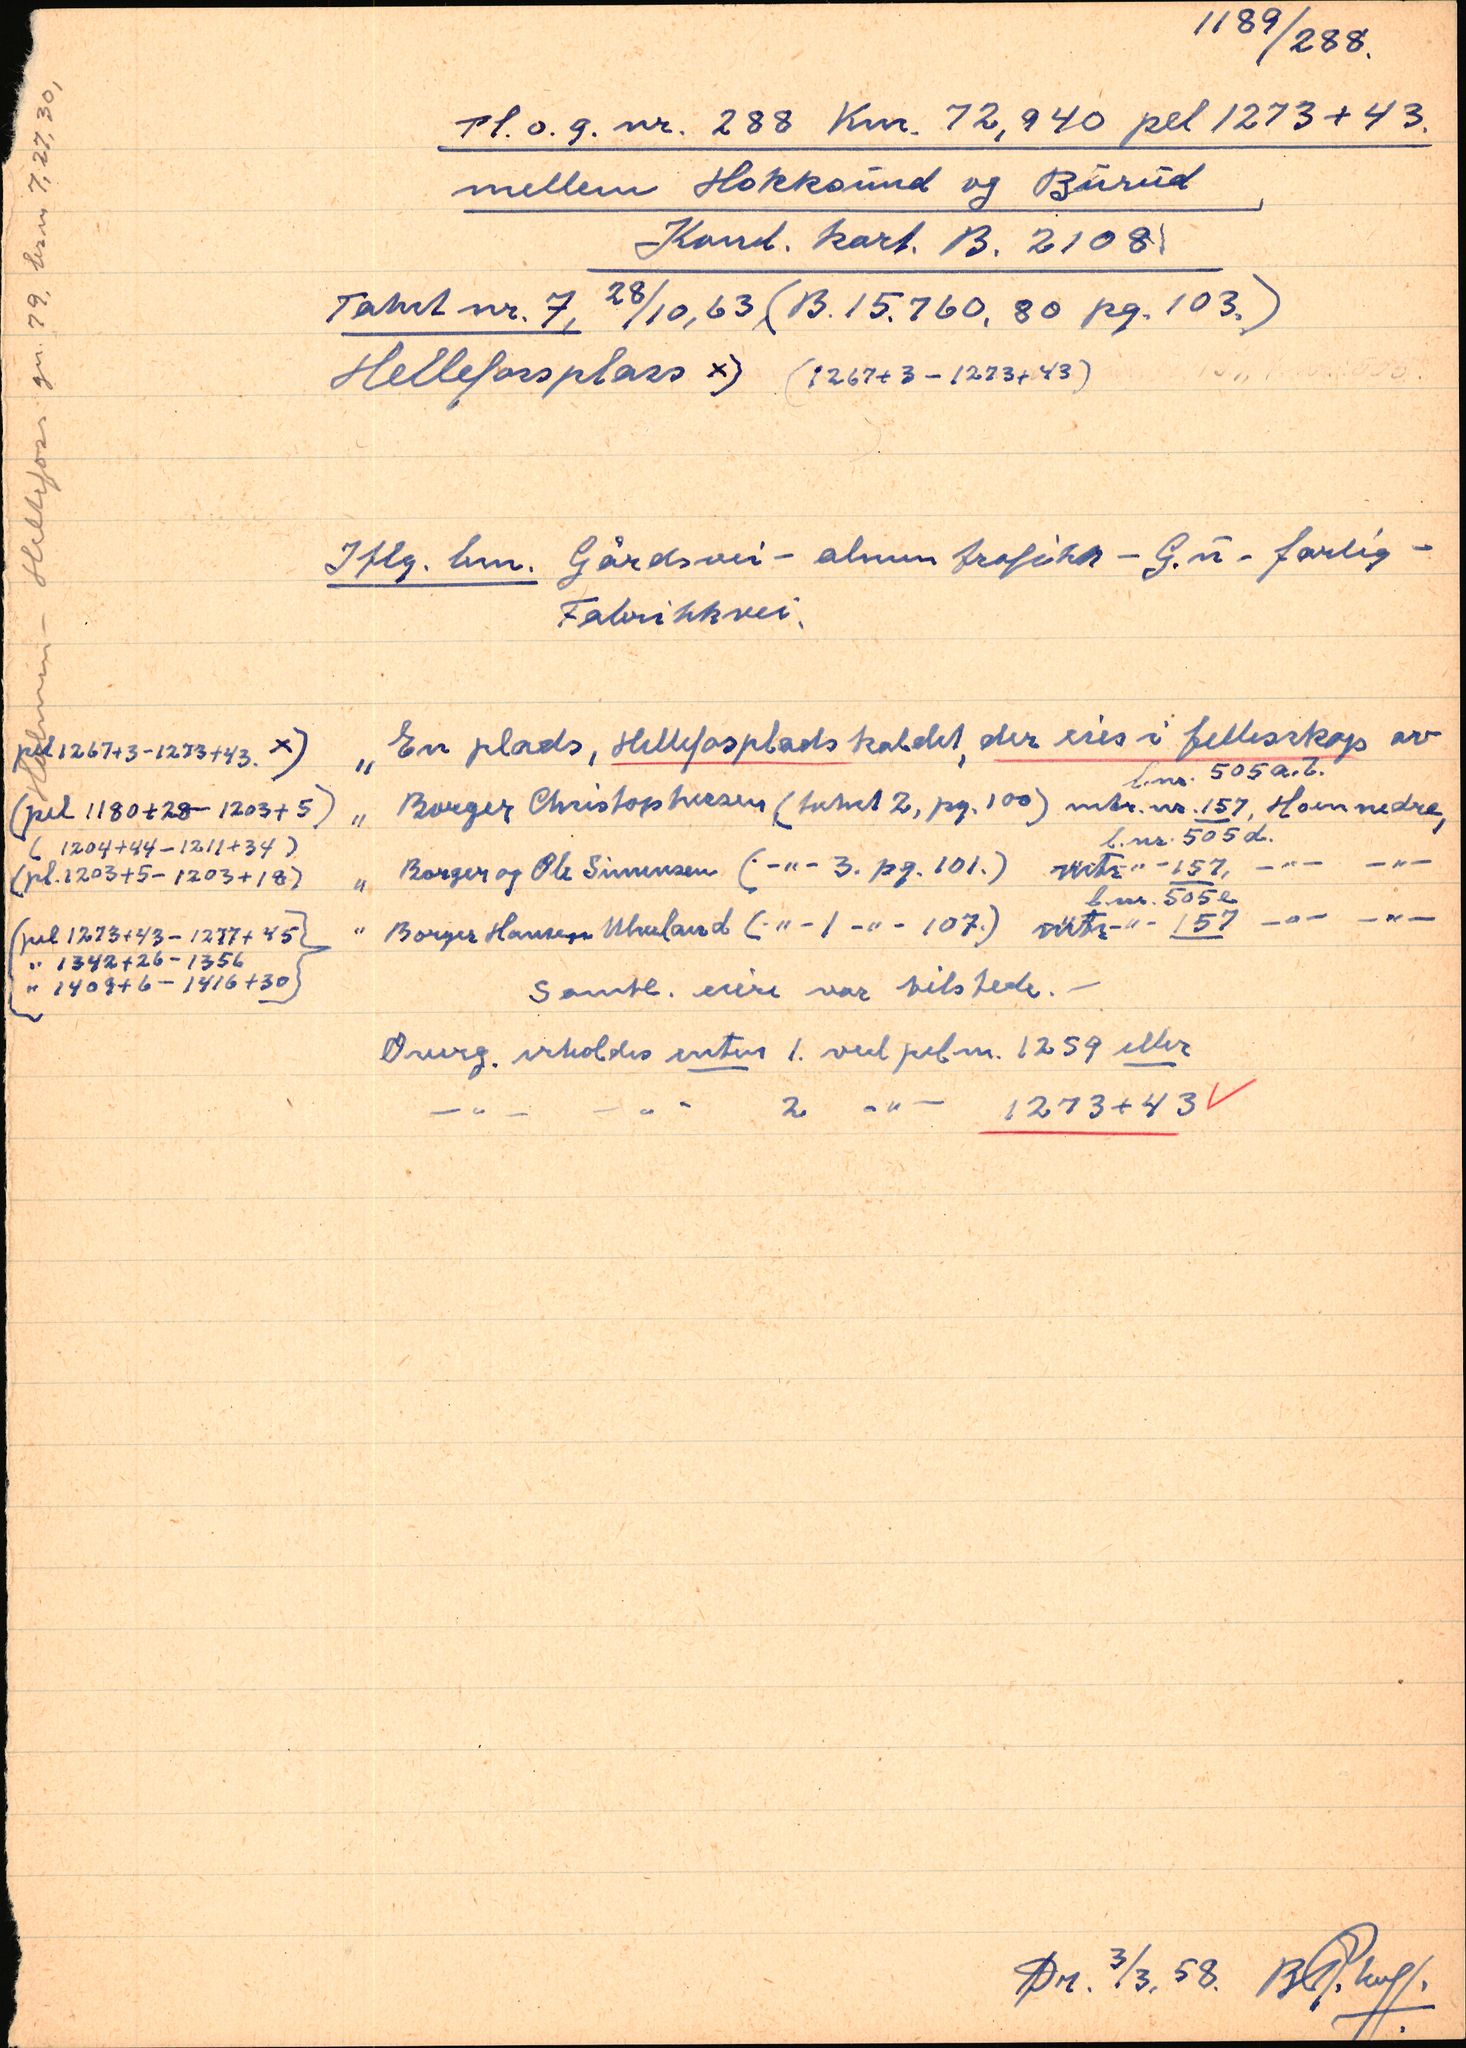 1189/288.
Pl. o. g. nr. 288 Km. 72,940 pel 1273+43.
mellem Hokksund og Burud
Kond. kart. B. 2108
Takst nr. 7, 28/10,63 (B. 15.760, 80 pg. 103.)
Hellefossplass x) (1267+3-1273+43)
Iflg. bm. Gårdsvei - almen trafikk - G.u - farlig -
Fabrikkvei.
pel 1267+3-1273+43. x) „ En plads, Hellefosplads kaldet, der eies i fellesskap av
b.nr. 505 a.b.
(pel 1180+28-1203+5) „ Borger Christophersen (takst 2, pg. 100) mtr. nr. 157, Hoen nedre,
(1204+44-1211+34) b.nr. 505 d.
(pl. 1203+5-1203+18) „ Borger og Ole Simensen (-"- 3. pg. 101.) mtr. -"- 157, -"- -"-
b.nr. 505 e
(pel 1273+43-1277+45) " Borger Hansen (-"- 1 -"- 107.) mtr. -"- 157 -"- -"-
" 1342+26-1356
" 1409+6-1416+30
Samtl. eiere var tilstede. -
Overg. erholdes enten 1. ved pel nr. 1259 eller
-"- -"- 2 -"- 1273+43 ✓
Hellefoss gn. 79, brn 7, 27, 30,
Dr. 3/3, 58.